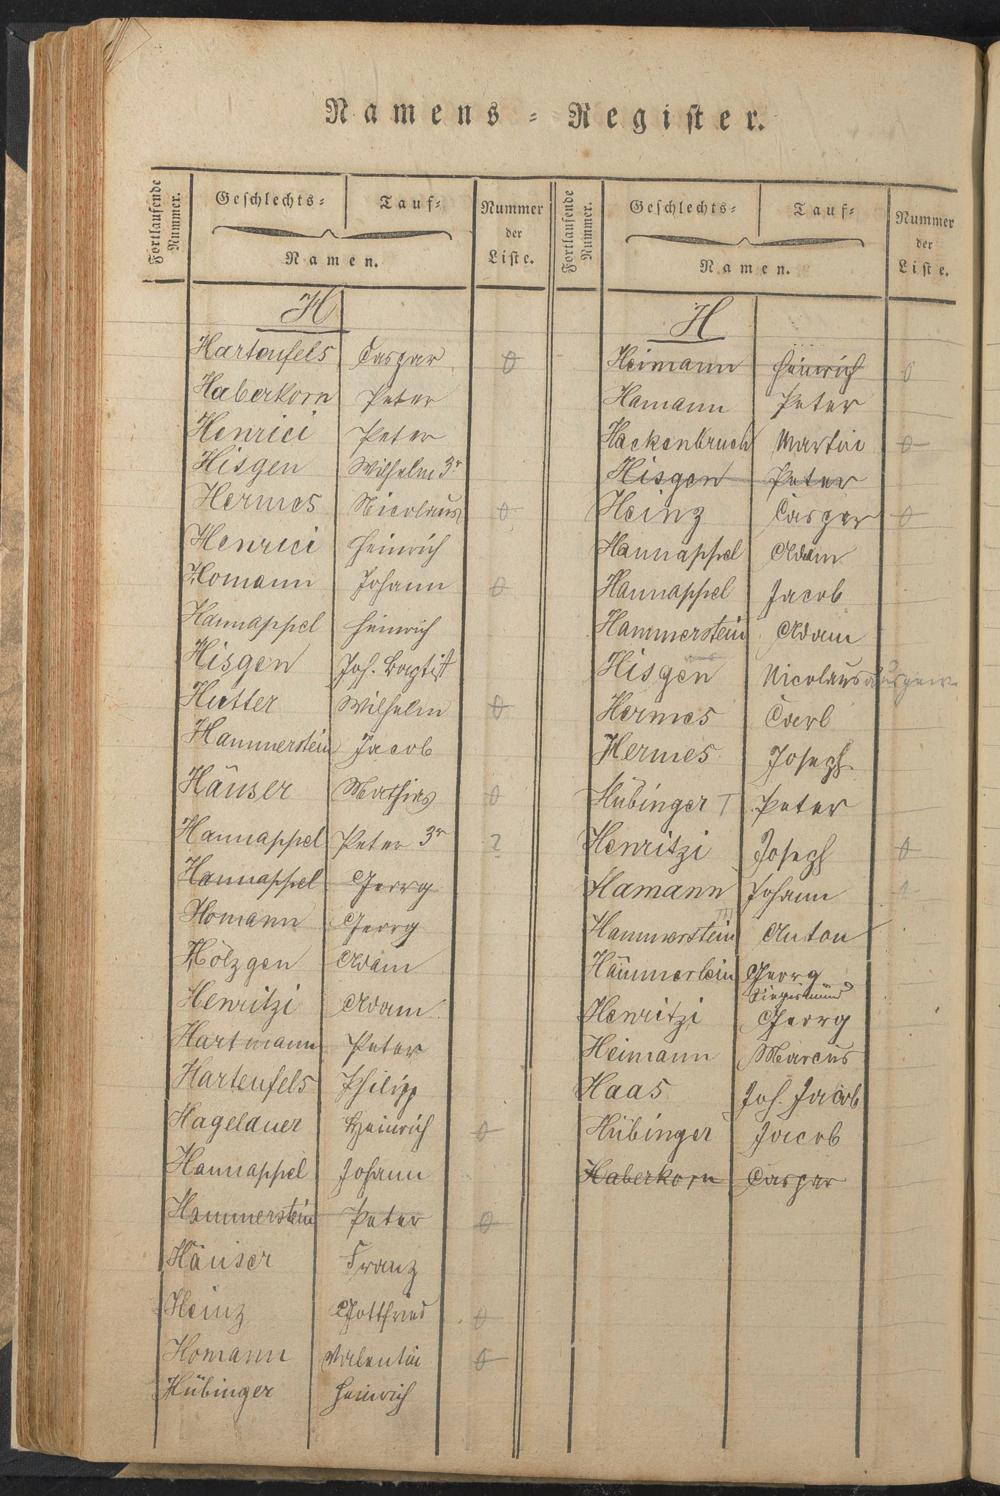 Namens-Register.
Fortlaufende Nummer.
Geschlechts- Tauf-
Namen.
Nummer der Liste.
Fortlaufende Nummer.
Geschlechts- Tauf-
Namen.
Nummer der Liste.
H
Hartenfels Caspar 0
Haberkorn Peter
Henrici Peter
Hisgen Wilhelm 3r
Hermes Nicolaus 0
Henrici Heinrich
Homann Johann 0
Hannappel Heinrich
Hisgen Joh. Baptist
Hutter Wilhelm 0
Hammerstein Jacob
Häuser Mathias 0
Hannappel Peter 3r ?
Hannappel Georg
Homann Georg
Hölzgen Adam
Henritzi Adam
Hartmann Peter
Hartenfels Philipp
Hagelauer Heinrich 0
Hannappel Johann
Hammerstein Peter 0
Häuser Franz
Heinz Gottfried 0
Homann Valentin 0
Hübinger Heinrich
H
Heimann Heinrich 0
Hamann Peter
Hackenbruch Martin 0
Hisgen Peter
Heinz Caspar 0
Hannappel Adam
Hannappel Jacob
Hammerstein Adam
Hisgen Nicolaus
Hermes Carl
Hermes Joseph
Hübinger Peter
Henritzi Joseph 0
Hamann Johann
Hammerstein Anton
Hämmerlein Georg
Siegesmund
Henritzi Georg
Heimann Marcus
Haas Joh. Jacob
Hübinger Jacob
Haberkorn Caspar